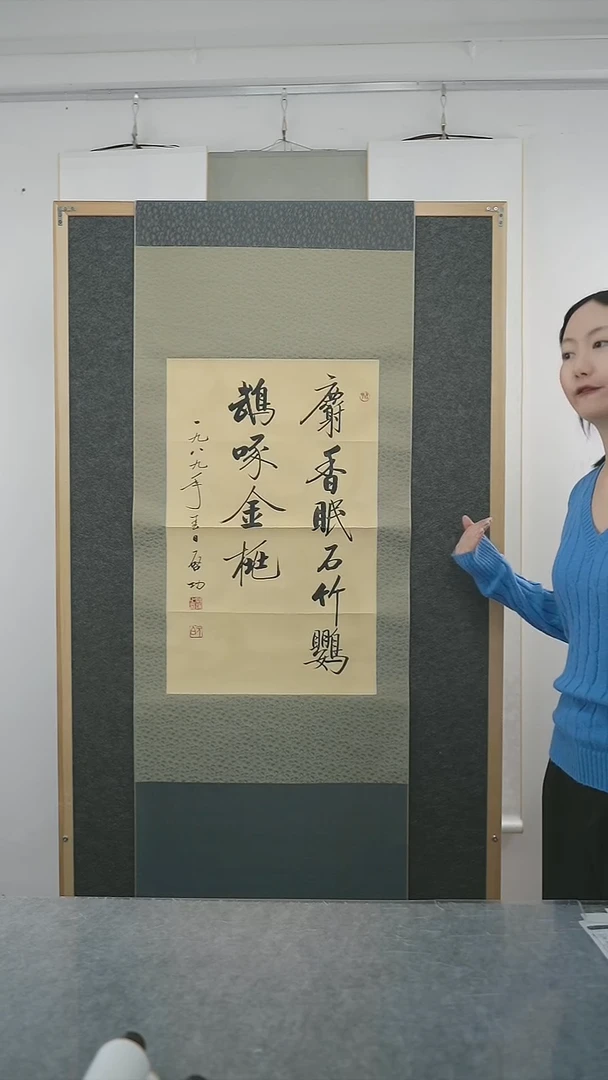 麝香眠石竹鸚
鵡啄金桃
一九八九年春日启功